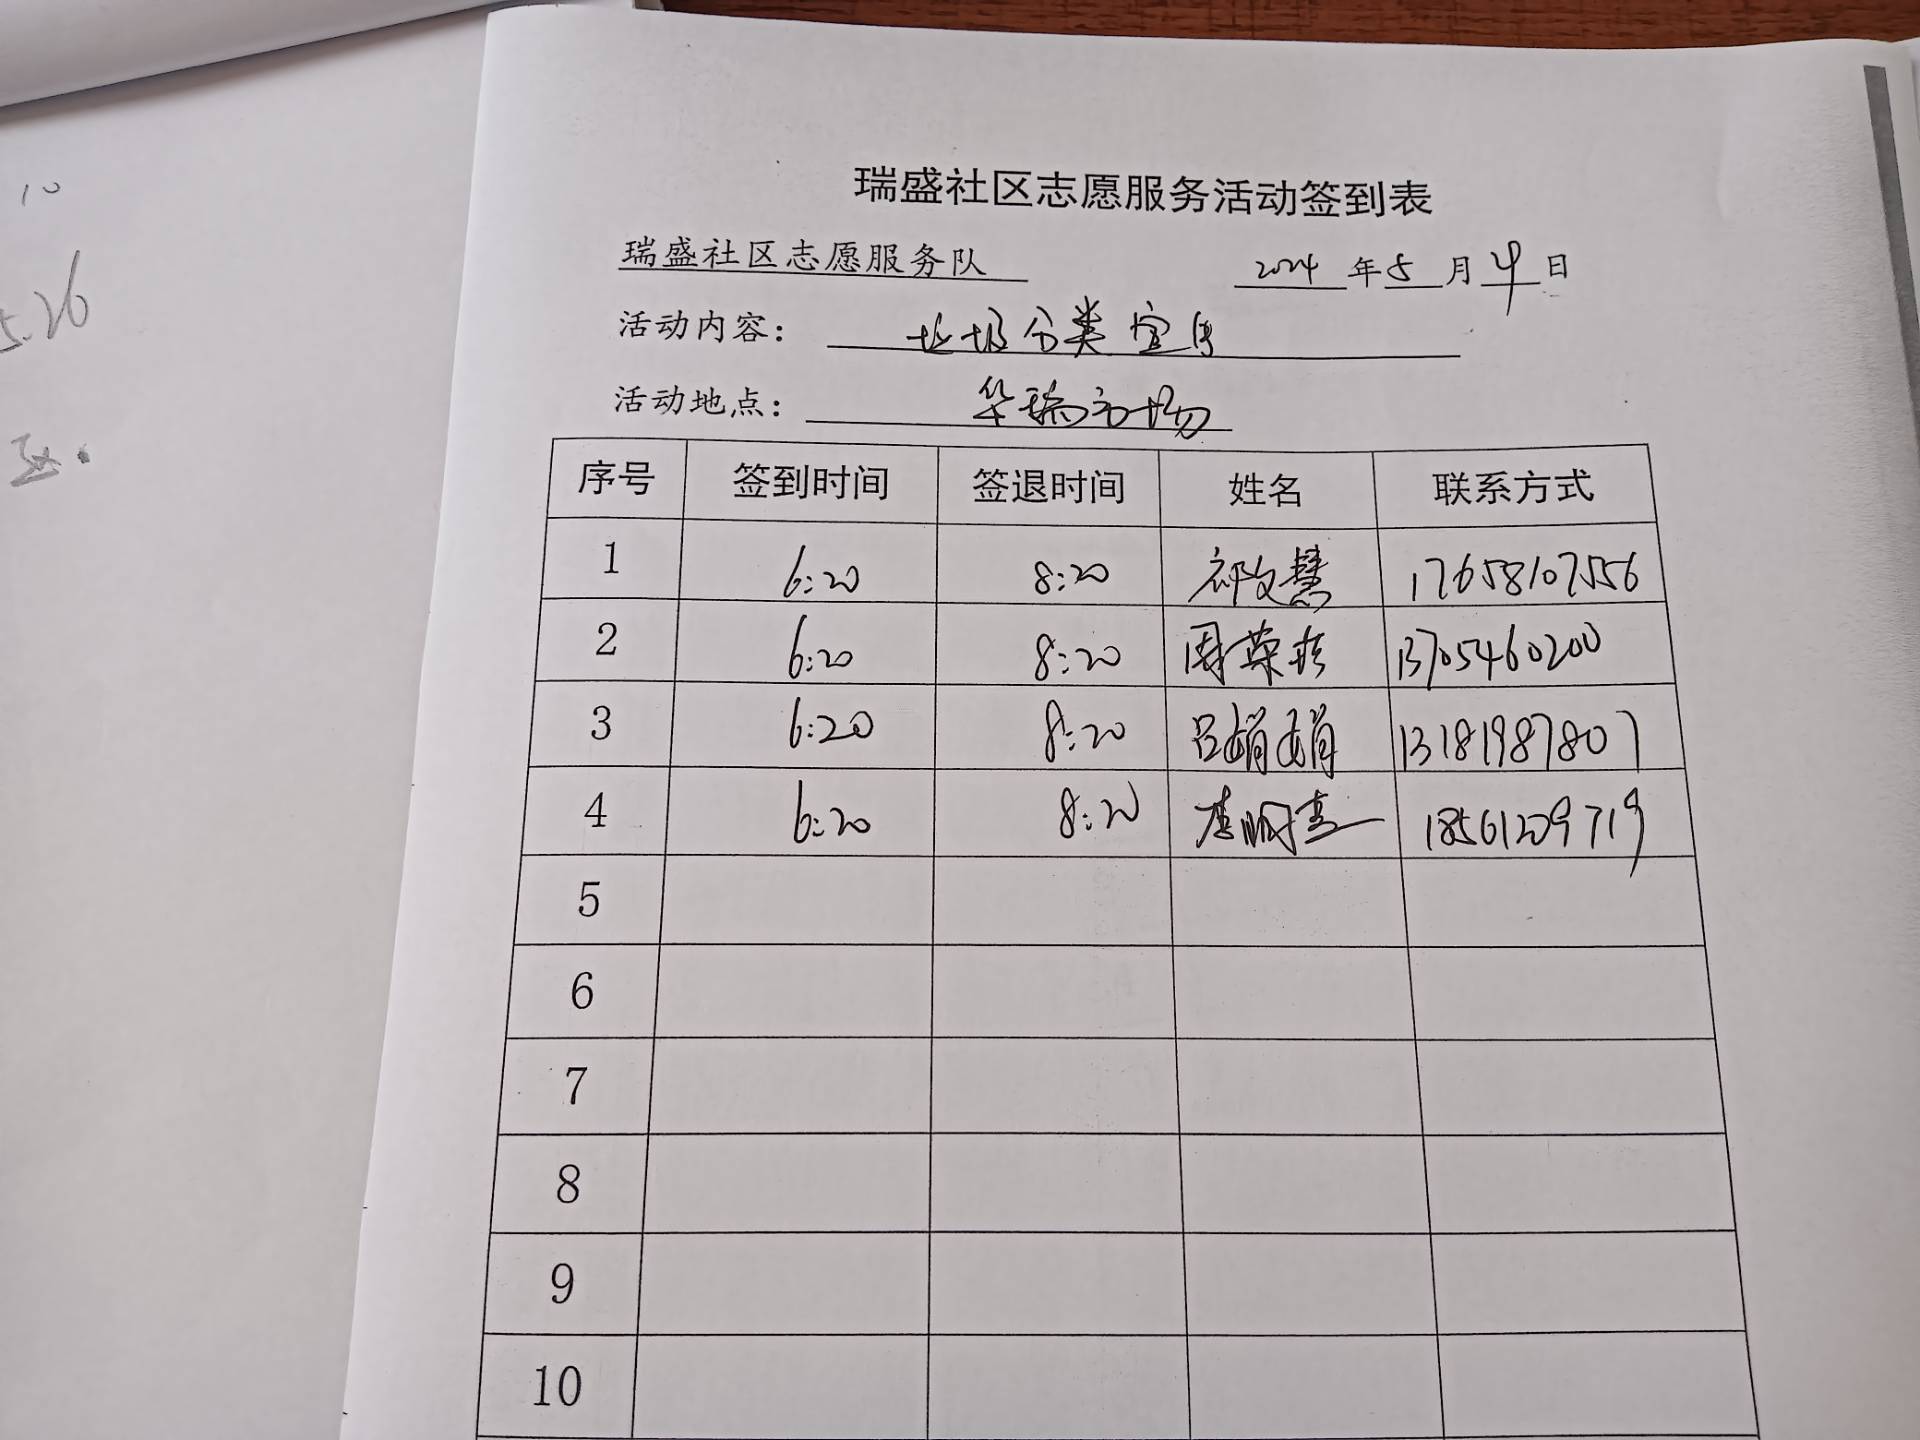 瑞盛社区志愿服务活动签到表
瑞盛社区志愿服务队 2024 年 5 月 4 日
活动内容： 垃圾分类宣传
活动地点： 华瑞市场
序号 签到时间 签退时间 姓名 联系方式
1 6:20 8:20 祁文慧 17658107556
2 6:20 8:20 周荣珍 13705460200
3 6:20 8:20 吕娟娟 13181987807
4 6:20 8:20 18561209719
5
6
7
8
9
10
10
5.26